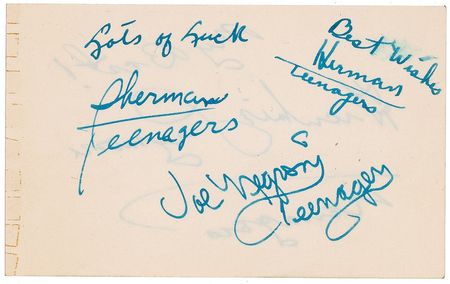 Lots of Luck
Sherman
Teenagers
Best Wishes
Herman
Teenagers
Joe Negroni
Teenager